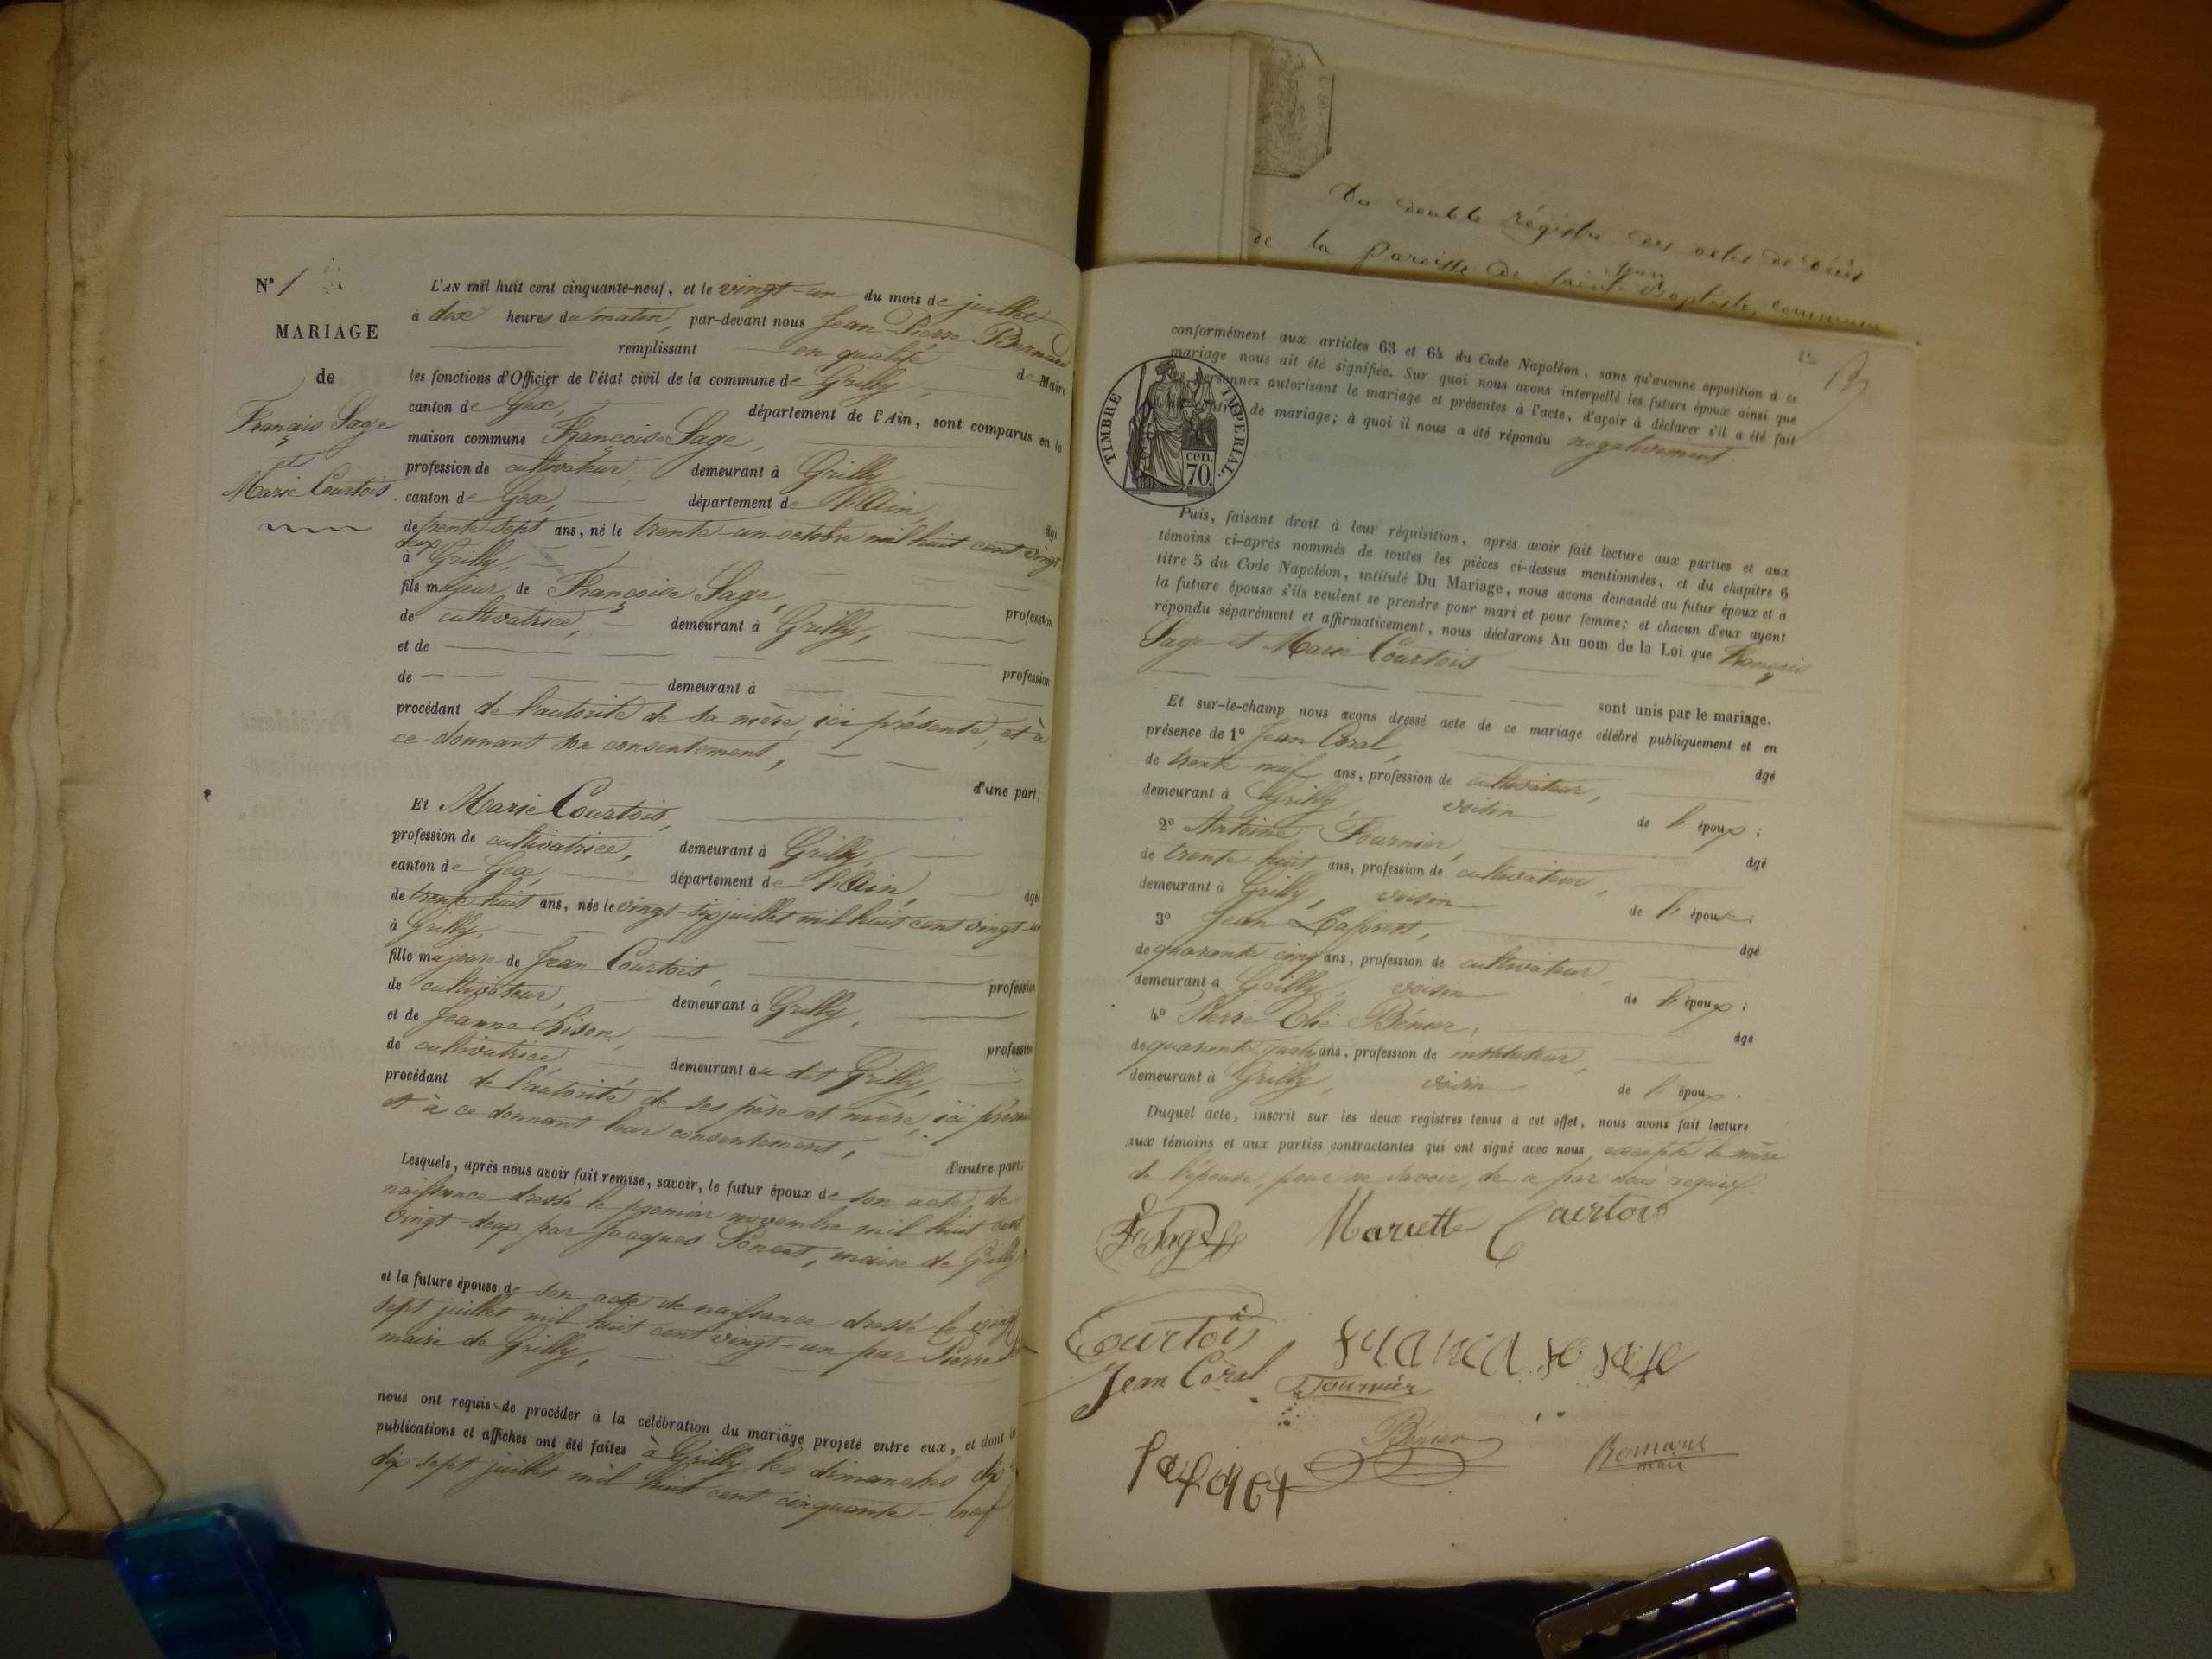 N° 1
MARIAGE
de
François Sage
et
Marie Courtois
L'AN mil huit cent cinquante-neuf, et le vingt-un du mois de juillet
à dix heures du matin, par-devant nous Jean-Pierre
remplissant en qualité de Maire
les fonctions d'Officier de l'état civil de la commune de Grilly,
canton de Gex, département de l'Ain, sont comparus en la
maison commune François Sage,
profession de cultivateur, demeurant à Grilly
canton de Gex, département de l'Ain, âgé
de trente sept ans, né le trente-un octobre mil huit cent vingt
deux
à Grilly,
fils majeur de Françoise Sage, profession
de cultivatrice, demeurant à Grilly,
et de profession
de demeurant à
procédant de l'autorité de sa mère, ici présente, et à
ce donnant son consentement,
d'une part;
Et Marie Courtois,
profession de cultivatrice, demeurant à Grilly,
canton de Gex, département de l'Ain, âgée
de trente huit ans, née le vingt-six juillet mil huit cent vingt-un
à Grilly,
fille majeure de Jean Courtois, profession
de cultivateur, demeurant à Grilly,
et de Jeanne profession
de cultivatrice demeurant au dit Grilly,
procédant de l'autorité de ses père et mère, ici
et à ce donnant leur consentement,
d'autre part;
Lesquels, après nous avoir fait remise, savoir, le futur époux de son acte de
naissance dressé le premier novembre mil huit cent
vingt-deux par Jacques maire de Grilly
et la future épouse de son acte de naissance dressé le vingt
sept juillet mil huit cent vingt-un par Pierre
maire de Grilly,
nous ont requis de procéder à la célébration du mariage projeté entre eux, et dont les
publications et affiches ont été faites à Grilly les dimanches dix
dix sept juillet mil huit cent cinquante-neuf
Du double régistre des actes de décès
de la paroisse de Saint Jean Baptiste, commune
conformément aux articles 63 et 64 du Code Napoléon, sans qu'aucune opposition à ce
mariage nous ait été signifiée. Sur quoi nous avons interpellé les futurs époux ainsi que
les personnes autorisant le mariage et présentes à l'acte, d'açoir à déclarer s'il a été fait
de mariage; à quoi il nous a été répondu negativement
TIMBRE IMPERIAL.
cen.
70.
Puis, faisant droit à leur réquisition, après avoir fait lecture aux parties et aux
témoins ci-après nommés de toutes les pièces ci-dessus mentionnées, et du chapitre 6
titre 5 du Code Napoléon, intitulé Du Mariage, nous avons demandé au futur époux et à
la future épouse s'ils veulent se prendre pour mari et pour femme; et chacun d'eux ayant
répondu séparément et affirmativement, nous déclarons Au nom de la Loi que François
Sage et Marie Courtois
sont unis par le mariage.
Et sur-le-champ nous avons dressé acte de ce mariage célébré publiquement et en
présence de 1° Jean Coral, âgé
de trente neuf ans, profession de cultivateur,
demeurant à Grilly, voisin de l'époux;
2° Antoine Fournier, âgé
de trente huit ans, profession de cultivateur,
demeurant à Grilly, voisin de l'épouse;
3° Jean Laforest, âgé
de quarante cinq ans, profession de cultivateur,
demeurant à Grilly, voisin de l'époux;
4° Pierre Elie Bénier, âgé
de quarante quatre ans, profession de instituteur,
demeurant à Grilly, voisin de l'époux.
Duquel acte, inscrit sur les deux registres tenus à cet effet, nous avons fait lecture
aux témoins et aux parties contractantes qui ont signé avec nous, excepté la mère
de l'épouse, pour ne savoir, de ce par nous requise
fr Sage
Mariette Courtois
Courtois
Jean Coral
Fournier
Bénier
maire